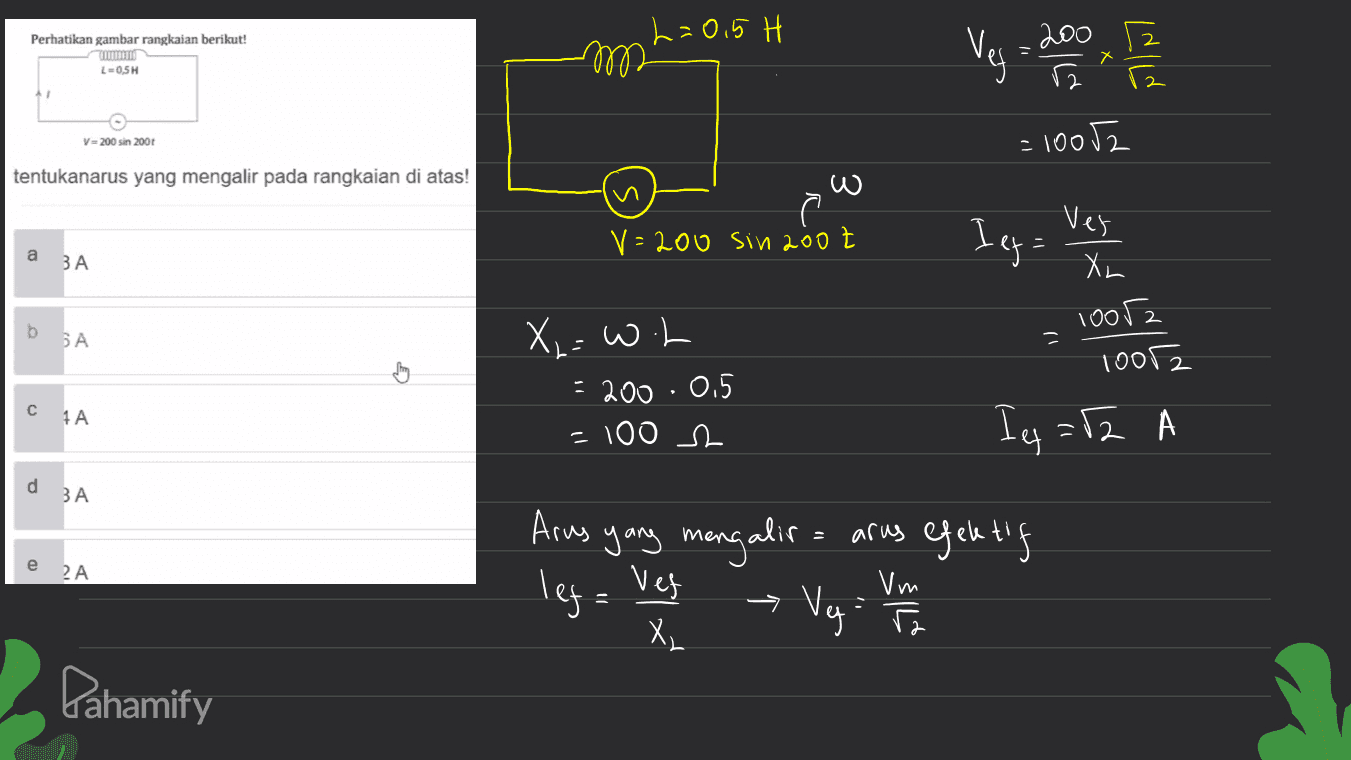 Perhatikan gambar rangkaian berikut!
L = 0,5 H
I
V = 200 sin 200t
tentukanarus yang mengalir pada rangkaian di atas!
a
b
c
d
e
L = 0,5 H
ω
V = 200 sin 200 t
X_L = ω . L
= 200 . 0,5
= 100 Ω
Vef = 200/√2 × √2/√2
= 100√2
Ief = Vef/X_L
= 100√2/100√2
Ief = √2 A
Arus yang mengalir = arus efektif
Ief = Vef/X_L → Vef = Vm/√2
Pahamify